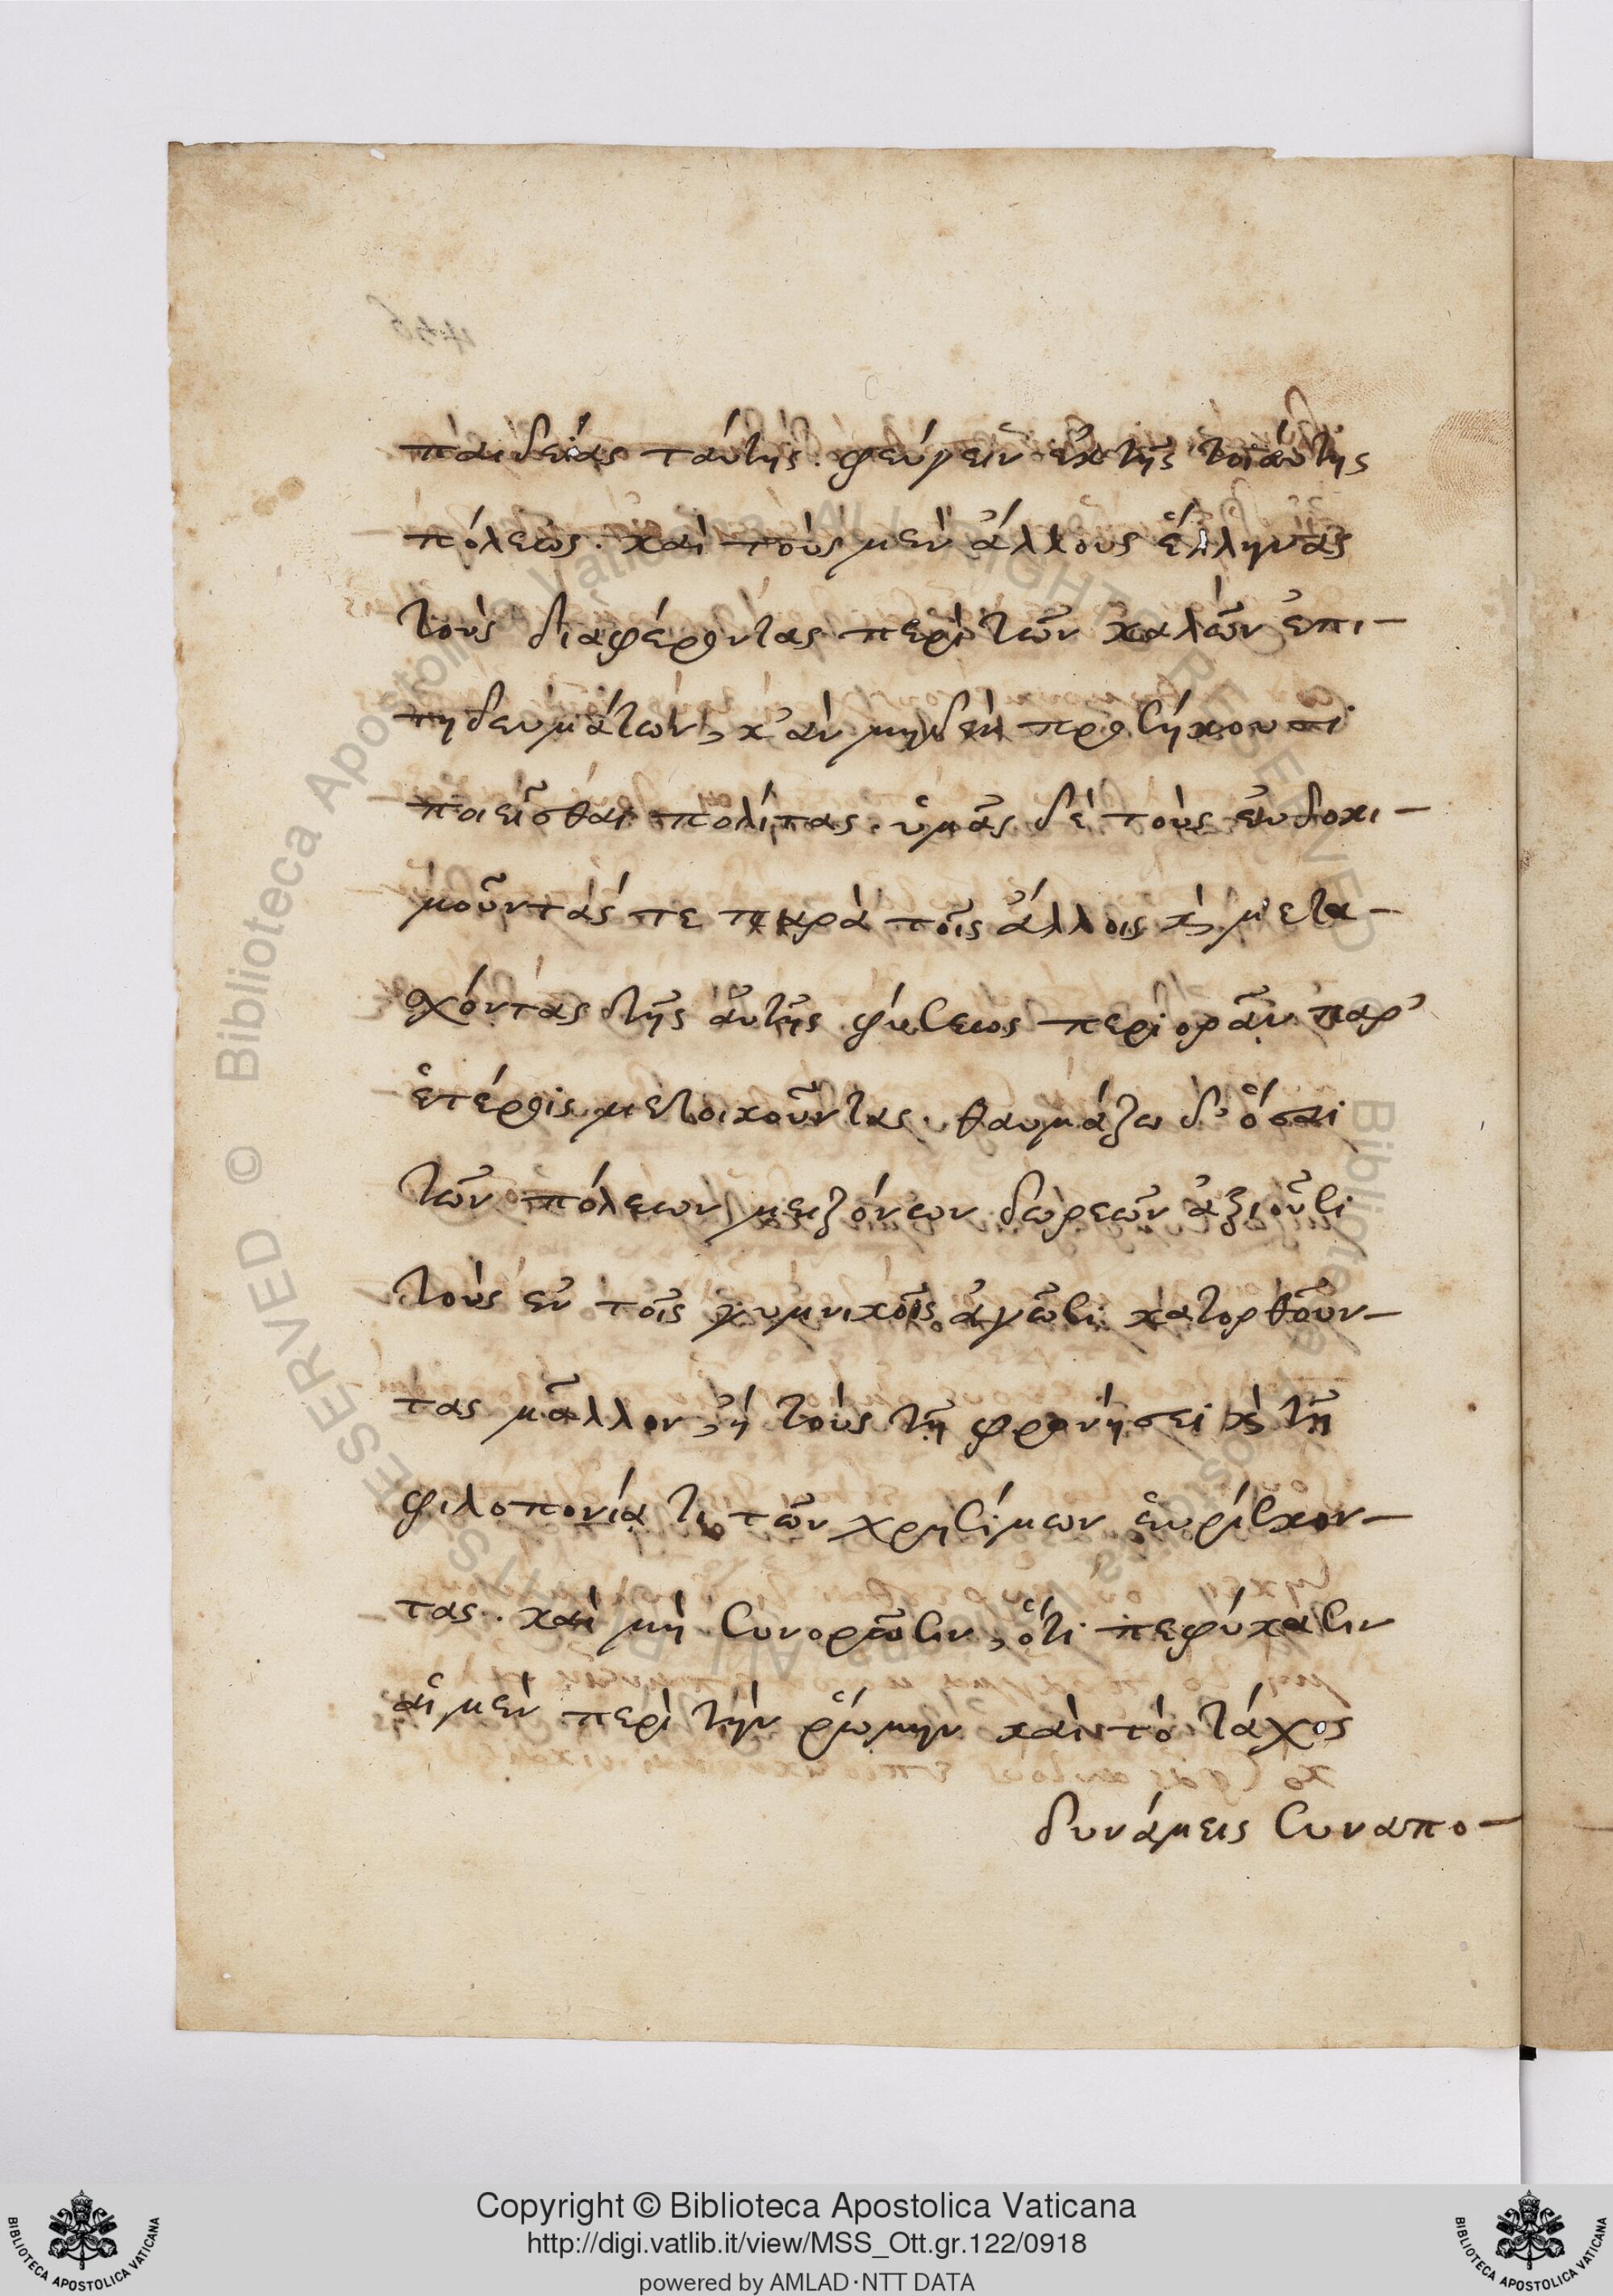 παιδείας ταύτης. φεύγειν ἐκ τῆς τοιαύτης
πόλεως. καὶ τοὺς μὲν ἄλλους ἕλληνας
τοὺς διαφέροντας περὶ τῶν καλῶν ἐπι-
τηδευμάτων, κἂν μηδὲν προσήκουσι
ποιεῖσθαι πολίτας. ὑμᾶς δὲ τοὺς εὐδοκι-
μοῦντάς τε παρὰ τοῖς ἄλλοις καὶ μετα-
σχόντας τῆς αὐτῆς φύσεως περιορᾶν παρ'
ἑτέροις μετοικοῦντας. θαυμάζω δ' ὅσαι
τῶν πόλεων μειζόνων δωρεῶν ἀξιοῦσι
τοὺς ἐν τοῖς γυμνικοῖς ἀγῶσι κατορθοῦν-
τας μᾶλλον, ἢ τοὺς τῇ φρονήσει καὶ τῇ
φιλοπονίᾳ τι τῶν χρησίμων εὑρίσκον-
τας. καὶ μὴ συνορῶσιν, ὅτι πεφύκασιν
αἱ μὲν περὶ τὴν ῥώμην καὶ τὸ τάχος
δυνάμεις συναπο-
Copyright © Biblioteca Apostolica Vaticana
http://digi.vatlib.it/view/MSS_Ott.gr.122/0918
powered by AMLAD·NTT DATA
BIBLIOTECA APOSTOLICA VATICANA
BIBLIOTECA APOSTOLICA VATICANA